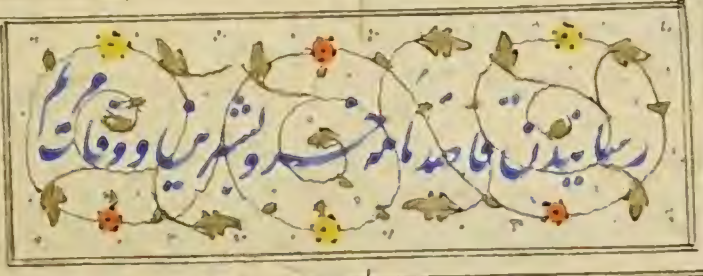 رسانیدن قاصد نامه خسرو بشیرین و وفات مریم